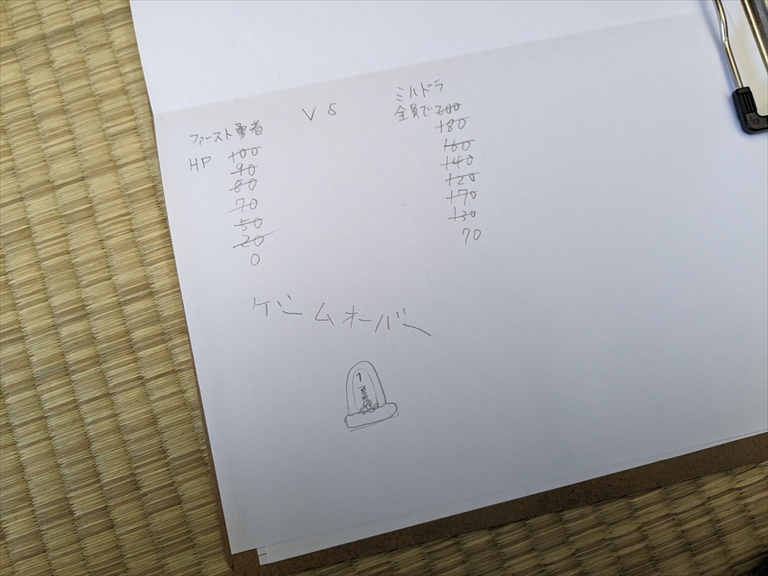 ファースト勇者
VS
ミルドラ
HP 100
90
80
70
50
20
0
全員で200
180
160
140
120
170
130
70
ゲームオーバー